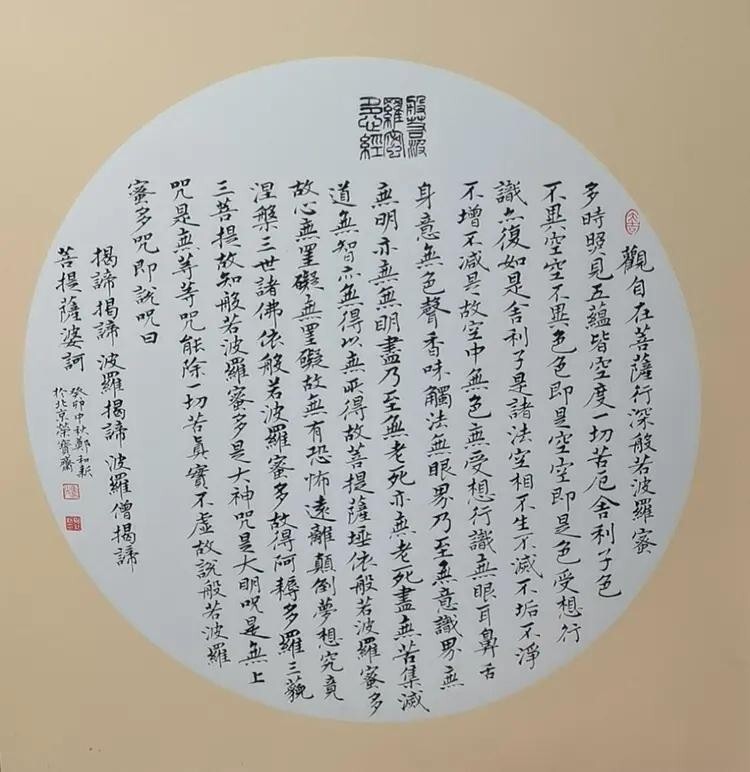 般若波
羅蜜
多心經
觀自在菩薩行深般若波羅蜜
多時照見五蘊皆空度一切苦厄舍利子色
不異空空不異色色即是空空即是色受想行
識亦復如是舍利子是諸法空相不生不滅不垢不淨
不增不減是故空中無色無受想行識無眼耳鼻舌
身意無色聲香味觸法無眼界乃至無意識界無
無明亦無無明盡乃至無老死亦無老死盡無苦集滅
道無智亦無得以無所得故菩提薩埵依般若波羅蜜多
故心無罣礙無罣礙故無有恐怖遠離顛倒夢想究竟
涅槃三世諸佛依般若波羅蜜多故得阿耨多羅三藐
三菩提故知般若波羅蜜多是大神咒是大明咒是無上
咒是無等等咒能除一切苦真實不虛故說般若波羅
蜜多咒即說咒曰
揭諦揭諦 波羅揭諦 波羅僧揭諦
菩提薩婆訶
癸卯中秋鄭和新
於北京榮寶齋